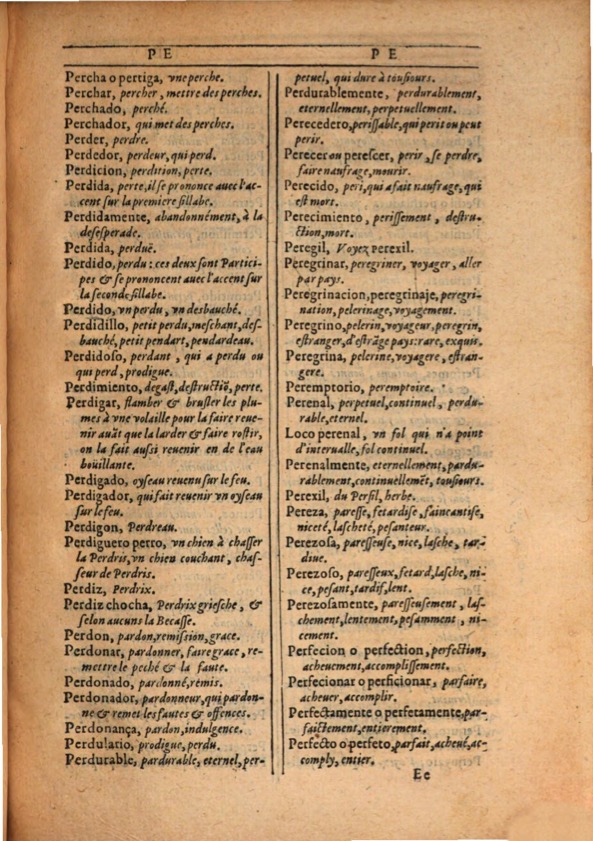 PE
Percha o pertiga, vne perche.
Perchar, percher, mettre des perches.
Perchado, perché.
Perchador, qui met des perches.
Perder, perdre.
Perdedor, perdeur, qui perd.
Perdicion, perdition, perte.
Perdida, perte, il se prononce auec l'ac-
cent sur la premiere sillabe.
Perdidamente, abandonnément, à la
desesperade.
Perdida, perduë.
Perdido, perdu : ces deux sont Partici-
pes & se prononcent auec l'accent sur
la seconde sillabe.
Perdido, vn perdu, vn desbauché.
Perdidillo, petit perdu, meschant, des-
bauché, petit pendart, pendardeau.
Perdidoso, perdant, qui a perdu ou
qui perd, prodigue.
Perdimiento, degast, destructiõ, perte.
Perdigar, flamber & brusler les plu-
mes à vne volaille pour la faire reue-
nir auãt que la larder & faire rostir,
on la fait aussi reuenir en de l'eau
boüillante.
Perdigado, oyseau reuenu sur le feu.
Perdigador, qui fait reuenir vn oyseau
sur le feu.
Perdigon, Perdreau.
Perdiguero perro, vn chien à chasser
la Perdris, vn chien couchant, chas-
seur de Perdris.
Perdiz, Perdrix.
Perdiz chocha, Perdrix griesche, &
selon aucuns la Becasse.
Perdon, pardon, remission, grace.
Perdonar, pardonner, faire grace, re-
mettre le peché & la faute.
Perdonado, pardonné, remis.
Perdonador, pardonneur, qui pardon-
ne & remet les fautes & offences.
Perdonança, pardon, indulgence.
Perdulario, prodigue, perdu.
Perdurable, pardurable, eternel, per-
PE
petuel, qui dure à tousiours.
Perdurablemente, perdurablement,
eternellement, perpetuellement.
Perecedero, perissable, qui perit ou peut
perir.
Perecer ou perescer, perir, se perdre,
faire naufrage, mourir.
Perecido, peri, qui a fait naufrage, qui
est mort.
Perecimiento, perissement, destru-
ction, mort.
Peregil, Voyez Perexil.
Peregrinar, peregriner, voyager, aller
par pays.
Peregrinacion, peregrinaje, peregri-
nation, pelerinage, voyagement.
Peregrino, pelerin, voyageur, peregrin,
estranger, d'estrãge pays: rare, exquis.
Peregrina, pelerine, voyagere, estran-
gere.
Peremptorio, peremptoire.
Perenal, perpetuel, continuel, perdu-
rable, eternel.
Loco perenal, vn fol qui n'a point
d'interualle, fol continuel.
Perenalmente, eternellement, pardu-
rablement, continuellemẽt, tousiours.
Perexil, du Persil, herbe.
Pereza, paresse, fetardise, faineantise,
niceté, lascheté, pesanteur.
Perezosa, paresseuse, nice, lasche, tar-
diue.
Perezoso, paresseux, fetard, lasche, ni-
ce, pesant, tardif, lent.
Perezosamente, paresseusement, las-
chement, lentement, pesamment, ni-
cement.
Perfecion o perfection, perfection,
acheuement, accomplissement.
Perfecionar o perficionar, parfaire,
acheuer, accomplir.
Perfectamente o perfetamente, par-
faictement, entierement.
Perfecto o perfeto, parfait, acheué, ac-
comply, entier.
Ee